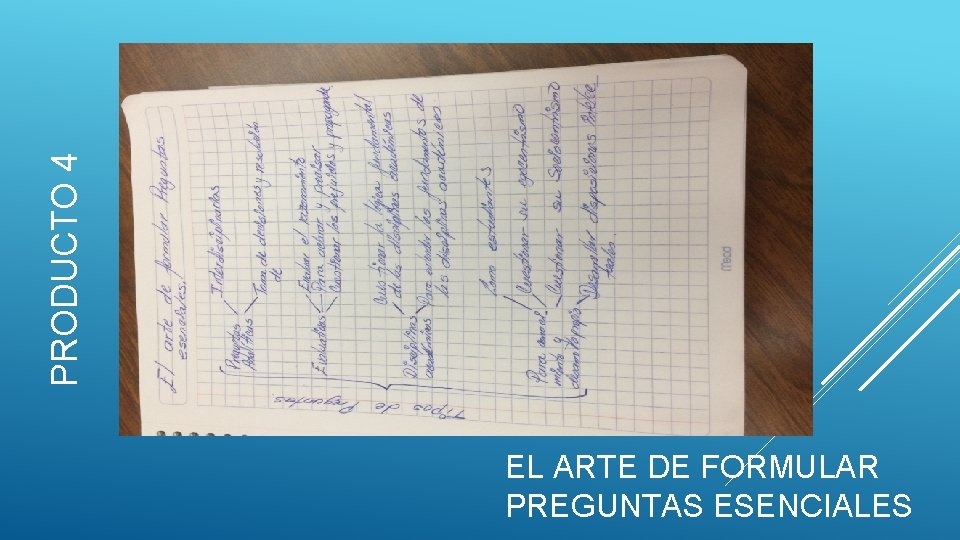 PRODUCTO 4
El arte de formular Preguntas
esenciales.
Tipos de Preguntas
Preguntas
Analíticas
Interdisciplinarias
Toma de decisiones y resolución
de
Evaluativas
Evaluar el razonamiento
Para aclarar y precisar
Cuestionar los prejuicios y propaganda
Disciplinas
académicas
Cuestionar la lógica fundamental
de las disciplinas académicas
Para entender los fundamentos de
las disciplinas académicas
Para
y
desarrollo propio
Como estudiantes
Cuestionar su egocentrismo
Cuestionar su Sociocentrismo
Desarrollar disposiciones
Meco
EL ARTE DE FORMULAR
PREGUNTAS ESENCIALES